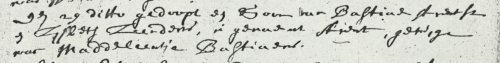 29 ditto gedoopt een Soon van Bastiaen Ariense
en Lijsbeth Leenders, is genaemt Arien, getuige
was Maddeleentje Bastiaens.